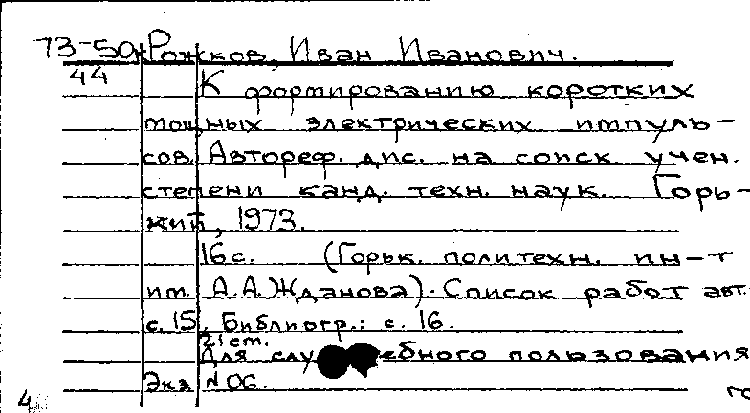 73-50д Рожков, Иван Иванович.
44
К формированию коротких
мощных электрических импуль-
сов. Автореф. дис. на соиск учен.
степени канд. техн. наук. Горь-
кий, 1973.
16с. (Горьк. политехн. ин-т
им. А.А.Жданова). Список работ авт.
с. 15. Библиогр.: с. 16.
21 ст.
Для служебного пользования
Экз №06.
4